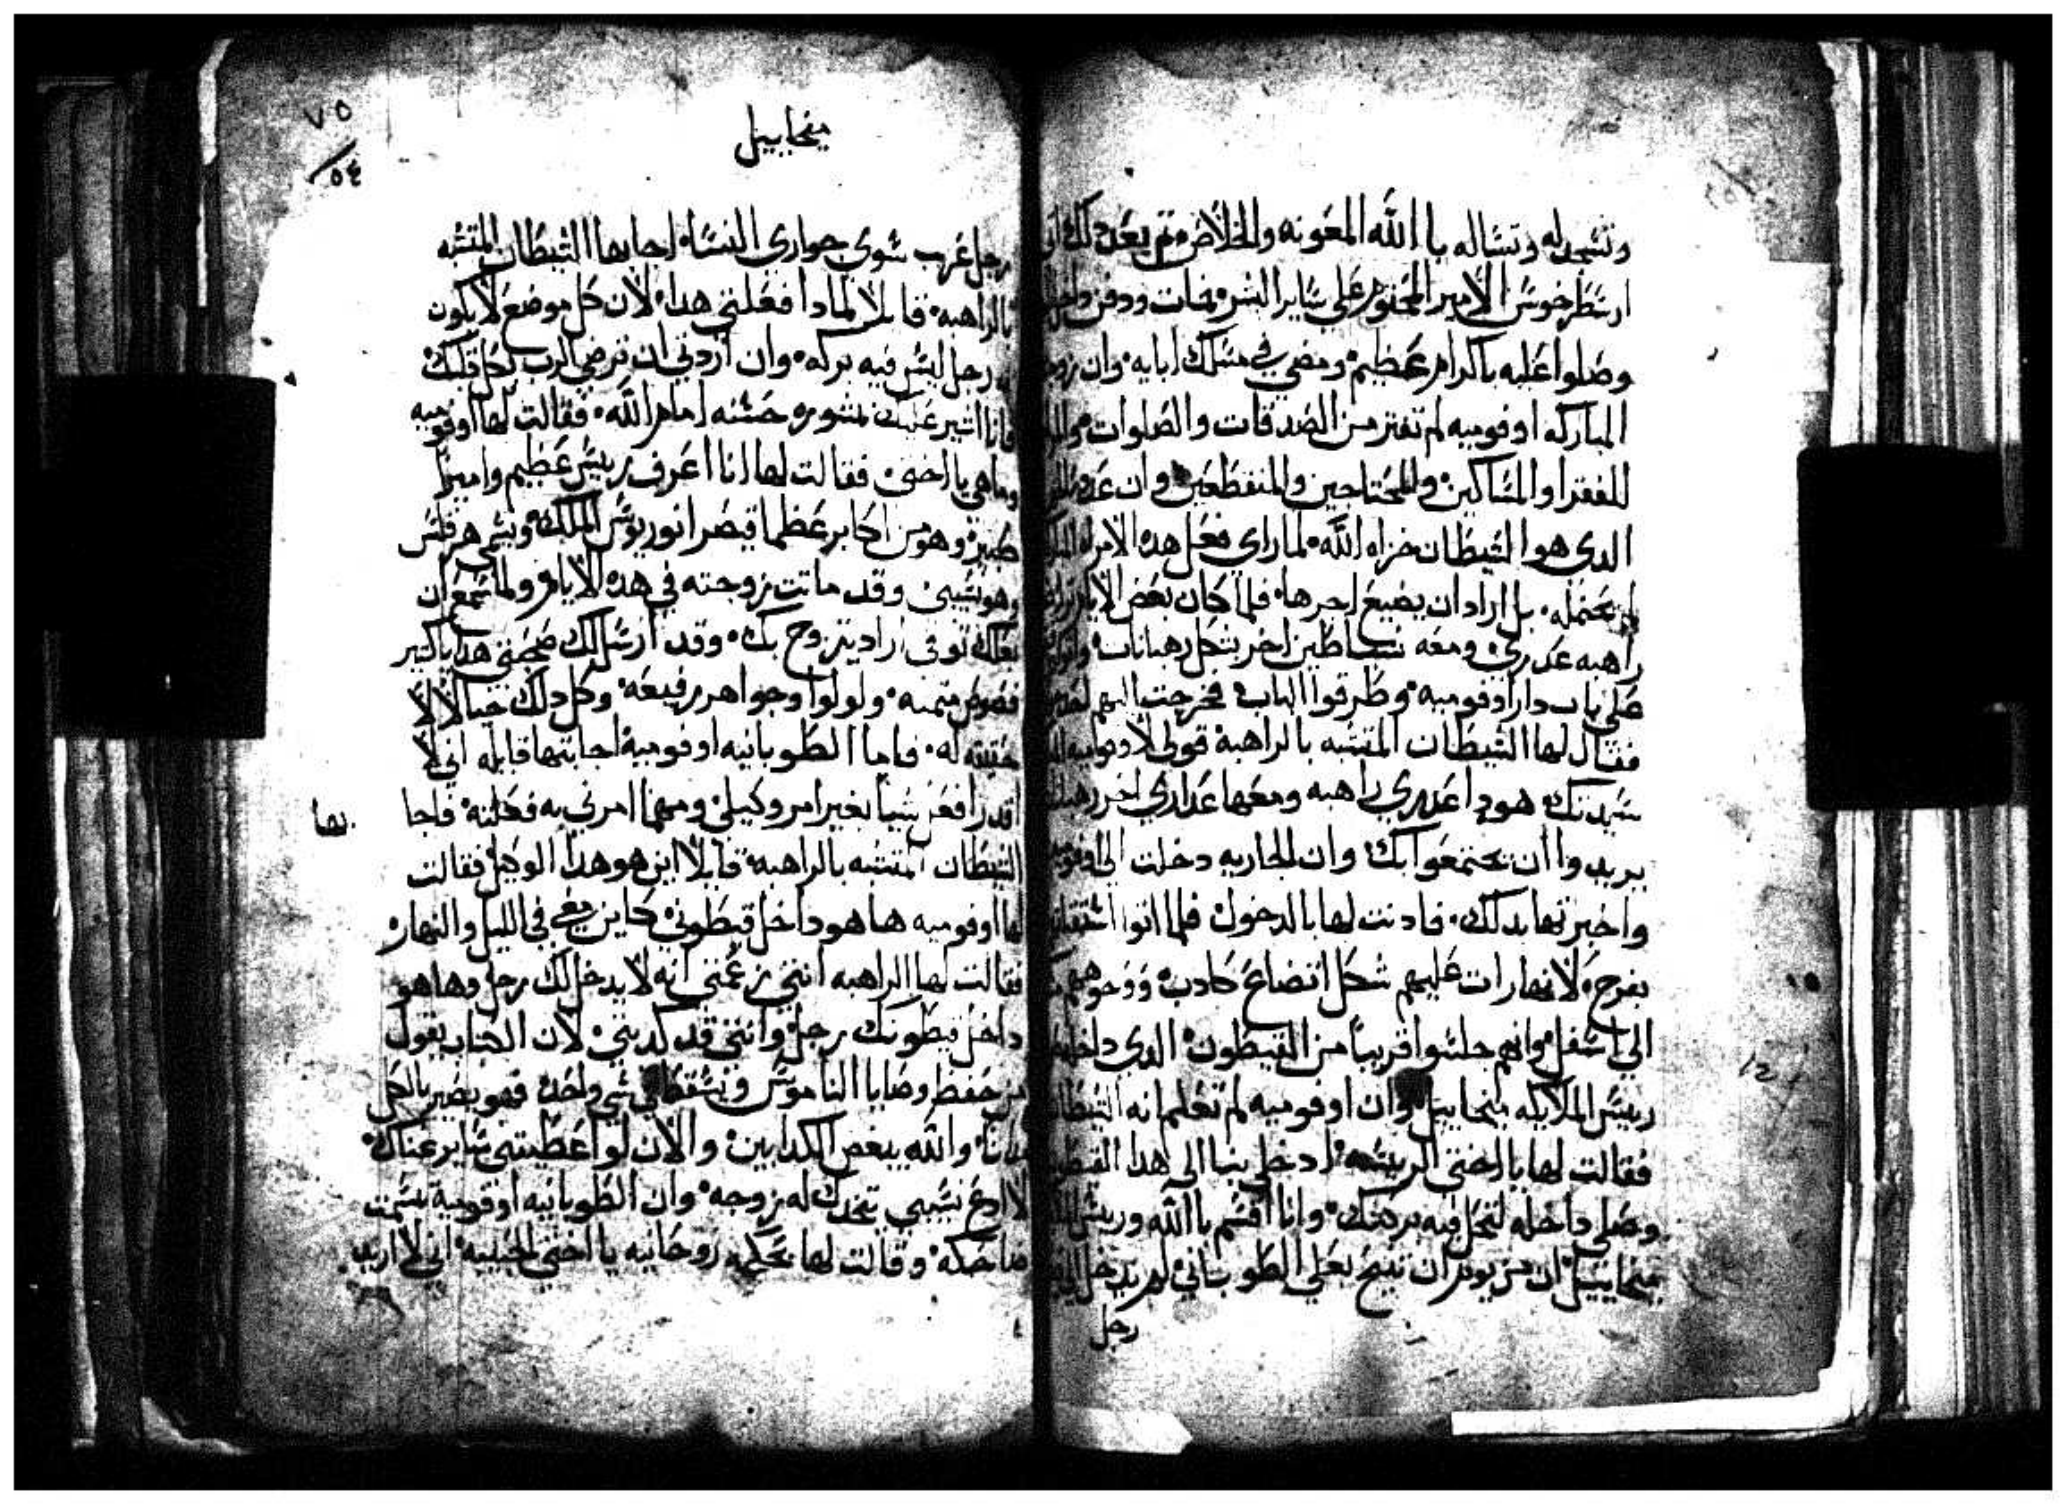 وتسجد له وتساله با الله المعونه والخلاص ثم بعد دلك
ارسطرخوس الامير المحبوب على ساير البشر مات ودفن
وصلوا عليه باكرام عظيم ومضي في مسلك ابايه وان
المباركه اوفوميه لم تفتر من الصدقات والصلوات
للفقرا والمساكين والمحتاجين والمنقطعين وان عدو
الدي هوا الشيطان خزاه الله لما راي فعل هده الامراه
لم يحتمله بل اراد ان يضيع اجرها فلما كان بعض الايام
راهبه عدري ومعه شياطين اخر بشكل رهبانات
على باب دار اوفوميه وطرقوا الباب فخرجت اليهم
فقال لها الشيطان المتشبه بالراهبة قولي لاوفوميه
ستك هودا عدري راهبه ومعها عداري اخر
يريدوا ان يجتمعوا بك وان الجاريه دخلت الى
واخبرتها بدلك فادنت لها بالدخول فلما اتوا
بفرح لانها رات عليهم شكل اتضاع كادب ووجوههم
الى اسفل وانهم جلسوا قريبا من القيطون الدي
رييس الملايكه ميخاييل وان اوفوميه لم تعلم انه
فقالت لها يا اختي الرييسه ادخلي بنا الى هدا
وصلي داخله لتحل فيه بركتك وانا اقسم با الله ورييس
ميخاييل ان من يوم ان تنيح بعلي الطوباني لم يدخل
رجل
ميخاييل
٧٥
٥٤
رجل غريب سوي جواري النساء اجابها الشيطان المتشبه
بالراهبه قايلا لمادا فعلتي هدا لان كل موضع لا يكون
رجل ليس فيه بركه وان اردتي ان ترضي الرب بكل قلبك
فانا اشير عليك بمشوره حسنه امام الله فقالت لها اوفوميه
وما هي يا اختي فقالت لها انا اعرف رييس عظيم وامير
وهو من اكابر عظما قيصر انوريوس الملك ويسمى هرقلس
وهو نسيبي وقد ماتت زوجته في هده الايام ولما سمع ان
بعلك توفي اراد يتزوج بك وقد ارسل لك صحبتي هدايا كتير
فصوص متمنه ولولوا وجواهر رفيعه وكل دلك
له فاما الطوبانيه اوفومية اجابتها قايله اني لا
اقدر افعل شيا بغير امر وكيلي ومهما امرني به فعلته فاجا
بها
الشيطان المتشبه بالراهبه قايلا اين هو هدا الوكيل فقالت
لها اوفوميه ها هو داخل قيطوني كاين معي في الليل والنهار
فقالت لها الراهبه انتي زعمتي انه لا يدخل لك رجل وها هو
داخل قيطونك رجل وانتي قد كدبتي لان الكتاب يقول
من حفظ وصايا الناموس ويسقط في شي واحد فهو يصير بالكل
والله يبغض الكدابين والان لو اعطيتني ساير غناك
لا ادع نسيبي يتخدك له زوجه وان الطوبانيه اوفومية تبسمت
ضاحكه وقالت لها بحكمه روحانيه يا اختي الحبيبه اني لا اريد